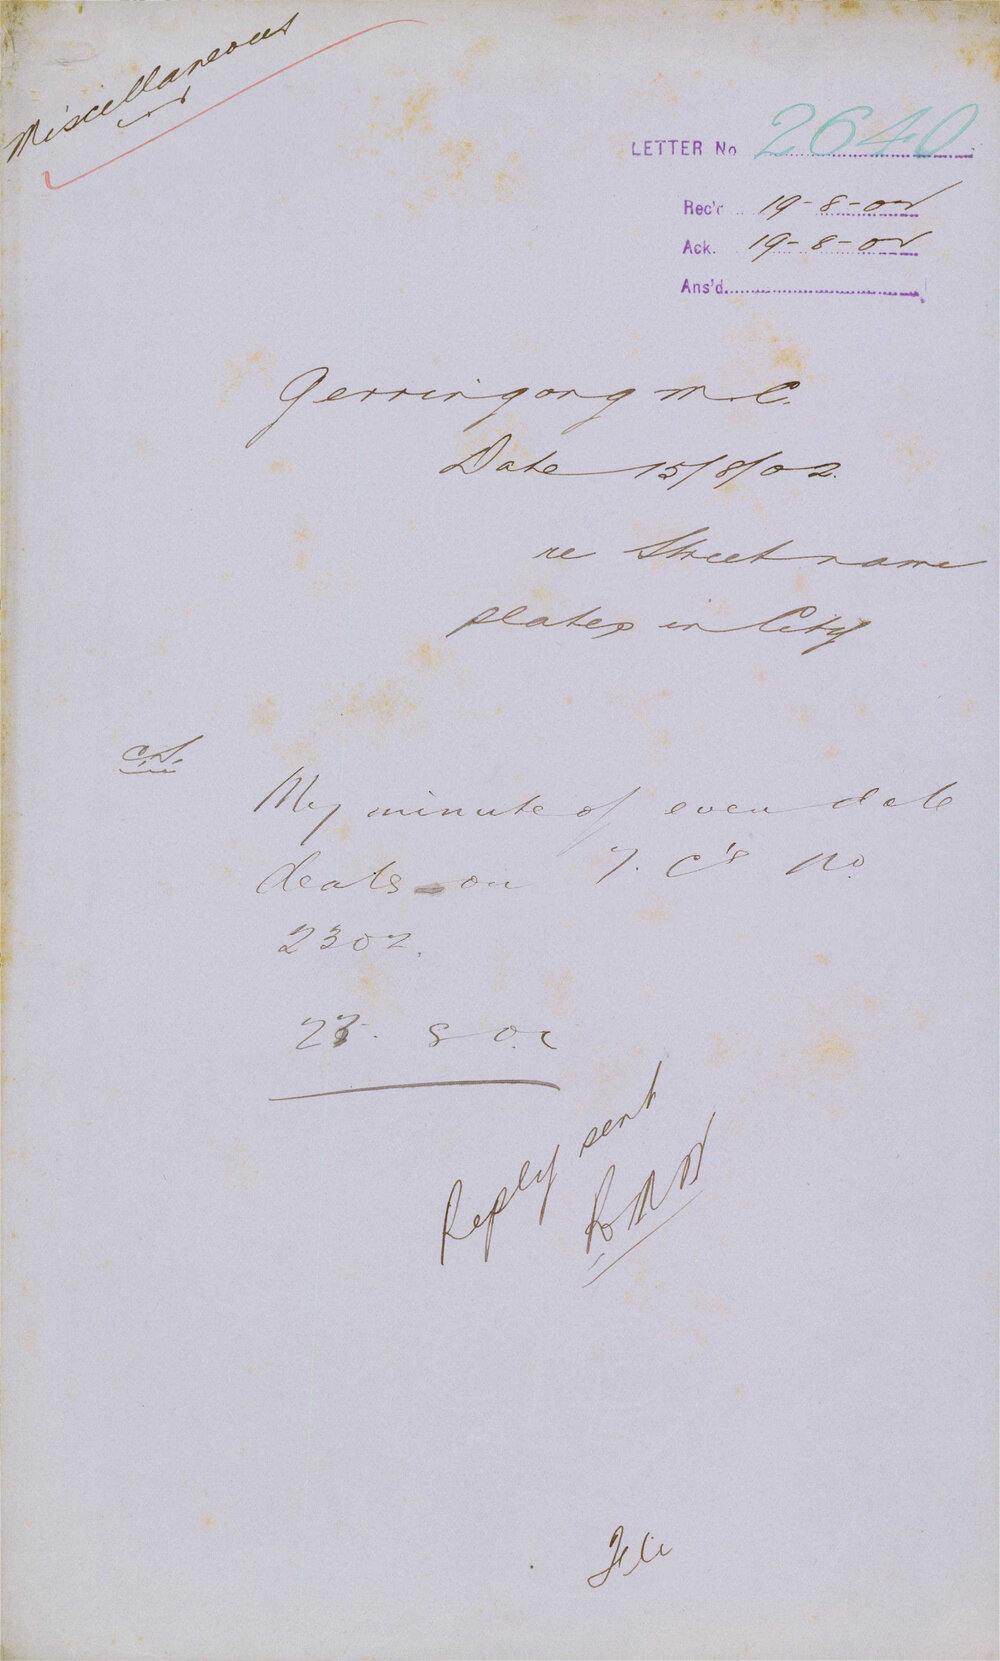 Miscellaneous
LETTER No 2640
Rec'd 19-8-02
Ack. 19-8-02
Ans'd
Gerringong M. C.
Date 15/8/02.
re Street name
plates in City
C.S.
My minute of even date
deals on T. C's No.
2307.
8 02
Reply sent
File